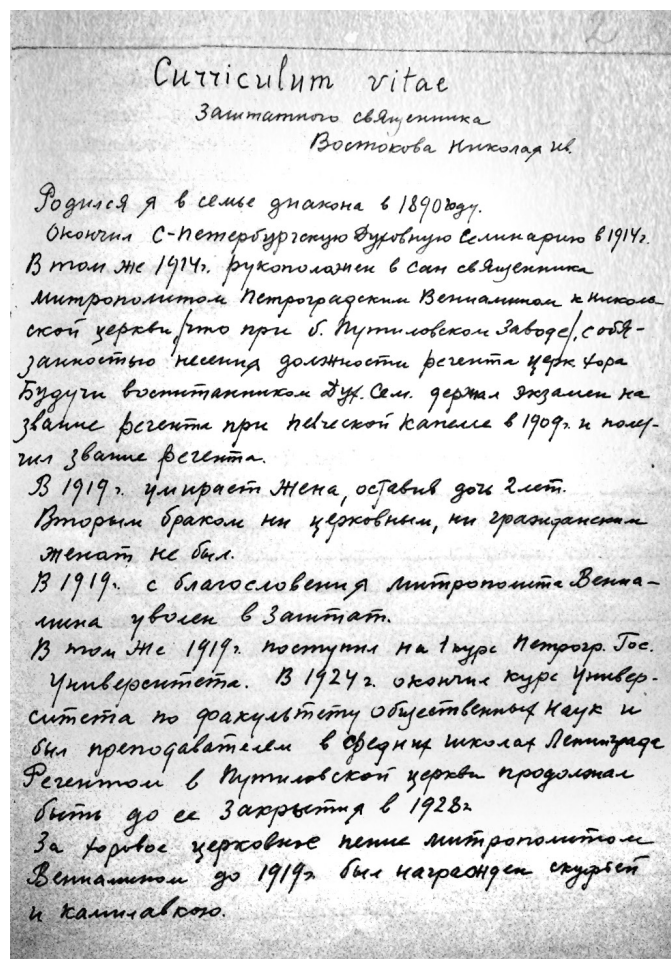 2
Curriculum vitae
Заштатного священника
Востокова Николая Ив.
Родился я в семье диакона в 1890 году.
Окончил С-Петербургскую Духовную Семинарию в 1914г.
В том же 1914г. рукоположен в сан священника
митрополитом Петроградским Вениамином к Николь-
ской церкви, /что при б. Путиловском Заводе/, с обя-
занностью несения должности регента церк хора
Будучи воспитанником Дух. Сем. держал экзамен на
звание регента при Певческой Капелле в 1909г. и полу-
чил звание регента.
В 1919г. умирает жена, оставив дочь 2 лет.
Вторым браком ни церковным, ни гражданским
женат не был.
В 1919г. с благословения митрополита Вениа-
мина уволен в Заштат.
В том же 1919г. поступил на 1 курс Петрогр. Гос.
Университета. В 1924г. окончил курс Универ-
ситета по факультету общественных наук и
был преподавателем в средних школах Ленинграда
Регентом в Путиловской церкви продолжал
быть до ее Закрытия в 1928г.
За хоровое церковное пение митрополитом
Вениамином до 1919г. был награжден скуфьей
и камилавкою.